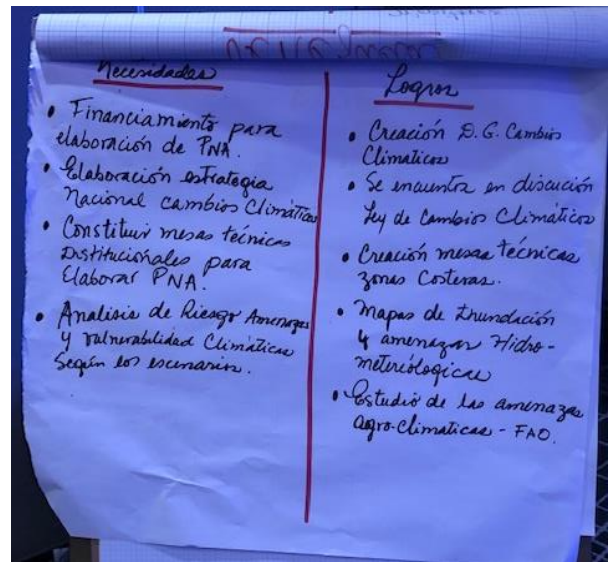 Necesidades
• Financiamiento para
elaboración de PNA.
• Elaboración estrategia
Nacional cambios Climáticos
• Constituir mesas técnicas
Institucionales para
Elaborar PNA.
• Analisis de Riesgo Amenazas
y vulnerabilidad Climáticas
Según los escenarios.
Logros
• Creación D. G. Cambios
Climaticos
• Se encuentra en discución
Ley de Cambios Climáticos
• Creación mesas técnicas
zonas Costeras.
• Mapas de Inundación
y amenazas Hidro-
meteriólogicas
• Estudio de las amenazas
agro-climaticas - FAO.